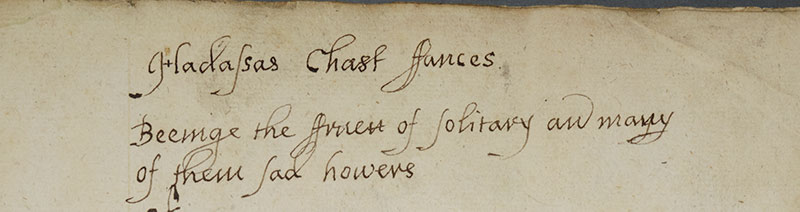 Hadassas Chast ffances
Beeinge the ffruett of solitary and many
of them sad howers